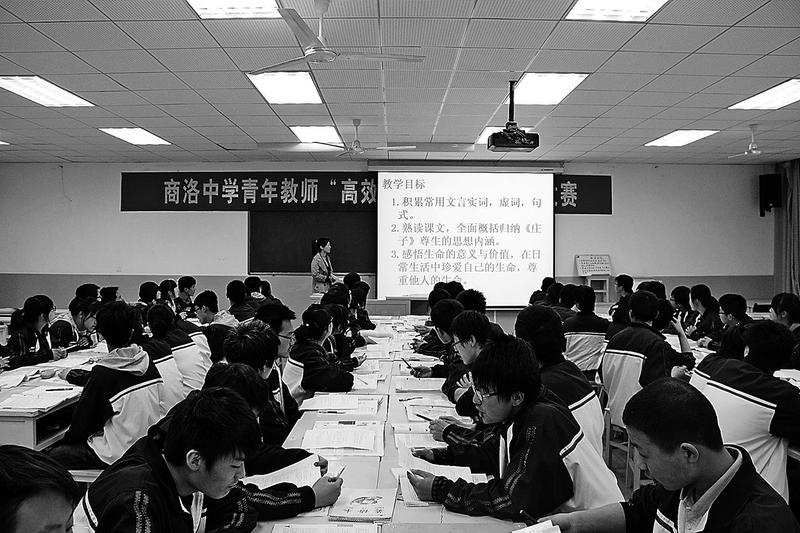 商洛中学青年教师“高效
赛
教学目标
1. 积累常用文言实词，虚词，句
式。
2. 熟读课文，全面概括归纳《庄
子》尊生的思想内涵。
3. 感悟生命的意义与价值，在日
常生活中珍爱自己的生命，尊
重他人的生命。